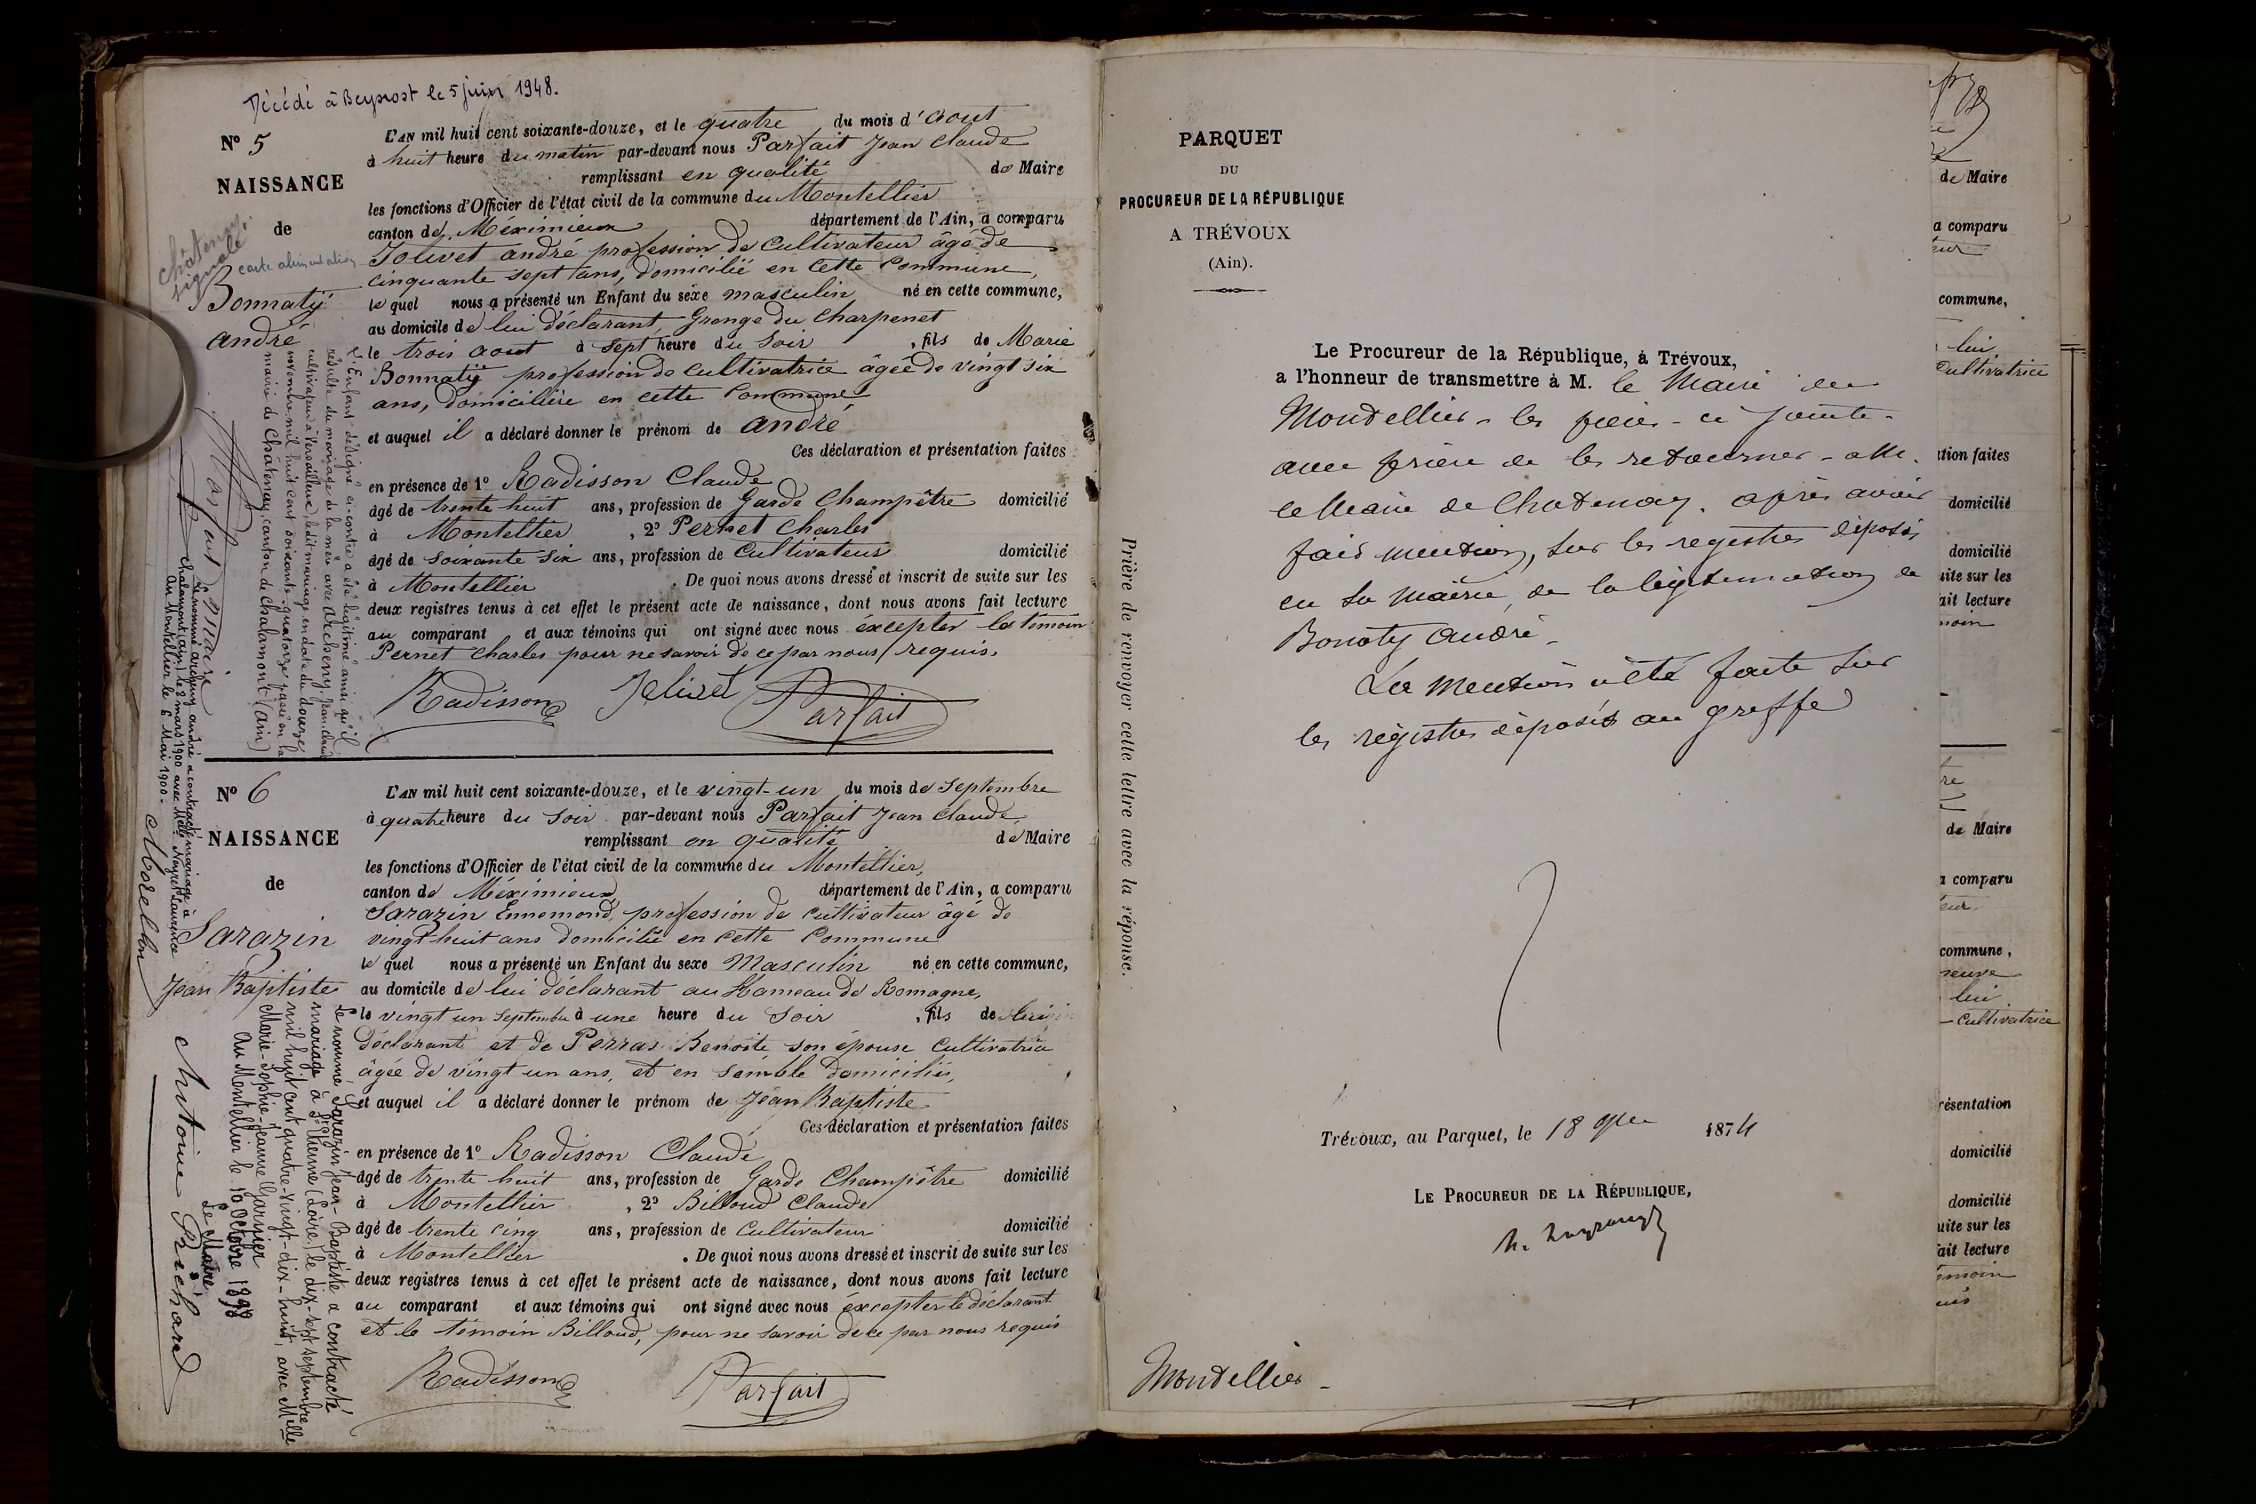 Décédé à Beynost le 5 juin 1948.
N° 5
NAISSANCE
de
Châtenay
signalé
carte alimentation
Bonnatÿ
andré
L'AN mil huit cent soixante-douze, et le quatre du mois d'aout
à huit heure du matin par-devant nous Parfait Jean Claude
remplissant en qualité de Maire
les fonctions d'Officier de l'état civil de la commune du Montellier
canton de Méximieux département de l'Ain, a comparu
Jolivet andré profession de Cultivateur âgé de
cinquante sept ans, domicilié en Cette Commune,
le quel nous a présenté un Enfant du sexe masculin né en cette commune,
au domicile de lui déclarant, Grange du Charpenet
le trois aout à Sept heure du Soir, fils de Marie
Bonnatÿ profession de cultivatrice âgée de vingt six
ans, domicilière en cette Commune
et auquel il a déclaré donner le prénom de andré
Ces déclaration et présentation faites
en présence de 1° Radisson Claude
âgé de trente huit ans, profession de Garde Champêtre domicilié
à Montellier, 2° Pernet Charles
âgé de soixante six ans, profession de Cultivateur domicilié
à Montellier. De quoi nous avons dressé et inscrit de suite sur les
deux registres tenus à cet effet le présent acte de naissance, dont nous avons fait lecture
au comparant et aux témoins qui ont signé avec nous éxcepter le témoin
Pernet Charles pour ne savoir de ce par nous requis.
Radisson Jolivet Parfait
L'Enfant désigné ci-contre a été légitimé ainsi qu'il
résulte du mariage de la mère avec Archeny Jean Claude
cultivateur à Versailleux, ledit mariage en date du douze
novembre mil huit cent soixante-quatorze passé en la
mairie de Châtenay, canton de Chalamont (Ain)
Parfait maire
Le nommé Archeny andré a contracté mariage à
Chalamont (ain) le 2 mars 1900 avec Melle Nayret Laurence
Au Montellier le 6 Mai 1900.
Morellon
N° 6
NAISSANCE
de
Sarazin
Jean Baptiste
L'AN mil huit cent soixante-douze, et le vingt-un du mois de Septembre
à quatre heure du Soir par-devant nous Parfait Jean Claude
remplissant en qualité de Maire
les fonctions d'Officier de l'état civil de la commune du Montellier,
canton de Méximieux département de l'Ain, a comparu
Sarazin Ennemond, profession de cultivateur âgé de
vingt huit ans domicilié en cette Commune
le quel nous a présenté un Enfant du sexe Masculin né en cette commune,
au domicile de lui déclarant au Hameau de Romagne,
le vingt un Septembre à une heure du Soir, fils de lui
déclarant et de Perras Benoite son épouse Cultivatrice
âgée de vingt un ans, et en semble domiciliés,
et auquel il a déclaré donner le prénom de Jean Baptiste
Ces déclaration et présentation faites
en présence de 1° Radisson Claude
âgé de trente huit ans, profession de Garde Champêtre domicilié
à Montellier, 2° Billoud Claude
âgé de trente cinq ans, profession de Cultivateur domicilié
à Montellier. De quoi nous avons dressé et inscrit de suite sur les
deux registres tenus à cet effet le présent acte de naissance, dont nous avons fait lecture
au comparant et aux témoins qui ont signé avec nous éxcepter le déclarant
et le témoin Billoud, pour ne savoir de ce par nous requis
Radisson Parfait
Le nommé Sarazin Jean-Baptiste a contracté
mariage à St Etienne (Loire) le dix-sept septembre
mil huit cent quatre-vingt-dix-huit, avec Melle
Marie-Sophie-Jeanne Garnier
Au Montellier le 10 Octobre 1898
Le Maire
Antoine Prichard
PARQUET
DU
PROCUREUR DE LA RÉPUBLIQUE
A TRÉVOUX
(Ain).
Prière de renvoyer cette lettre avec la réponse.
Le Procureur de la République, à Trévoux,
a l'honneur de transmettre à M. le Maire du
Montellier les pièces ci jointe
avec prière de les retourner à M.
le Maire de Chatenay. après avoir
fait mention, sur les registres déposés
en sa Mairie, de la légitimation de
Bonoty André
La mention a été faite sur
les registres déposés au greffe
Trévoux, au Parquet, le 18 9bre 1874
LE PROCUREUR DE LA RÉPUBLIQUE,
Montellier
de Maire
a comparu
commune,
lui
Cultivatrice
tion faites
domicilié
domicilié
uite sur les
ait lecture
moin
de Maire
a comparu
commune,
lui
Cultivatrice
résentation
domicilié
domicilié
uite sur les
ait lecture
moin